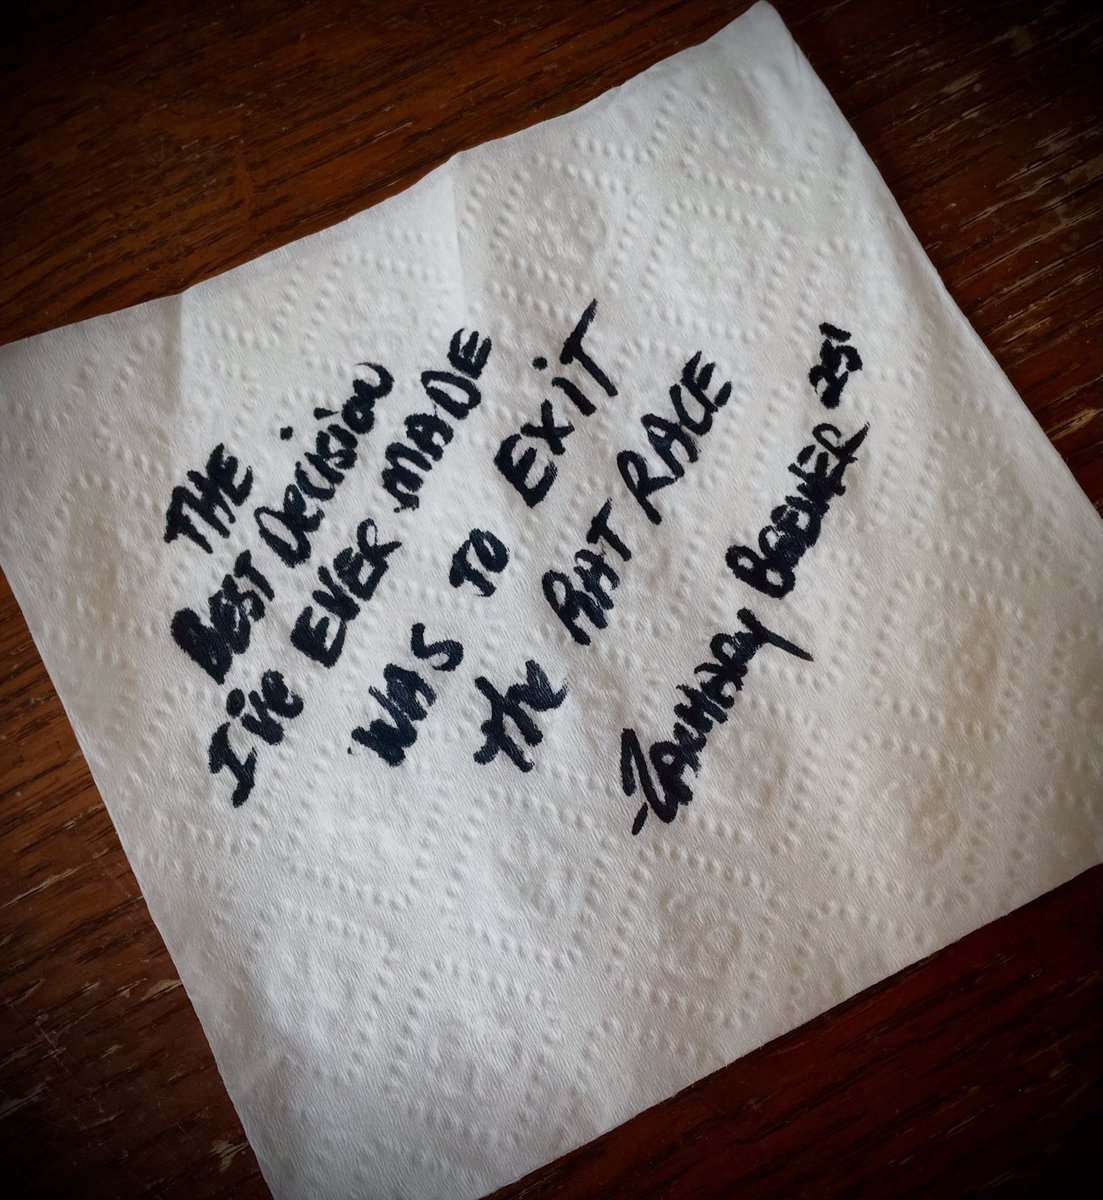 THE
BEST DECISION
I'VE EVER MADE
WAS TO EXIT
THE RAT RACE
-ZACHARY BREWER 25'